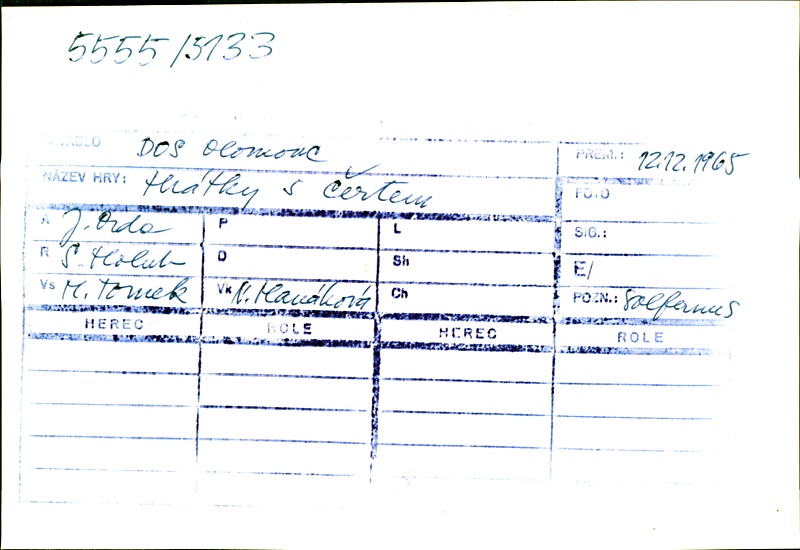 5555/5133
DIVADLO DOS Olomouc PREM.: 12.12.1965
NÁZEV HRY: Hrátky s čertem FOTO
A J. Drda P L SIG.:
R S. Holub D Sh E/
Vs M. Tomek Vk N. Hanáková Ch POZN.: Solfernus
HEREC ROLE HEREC ROLE